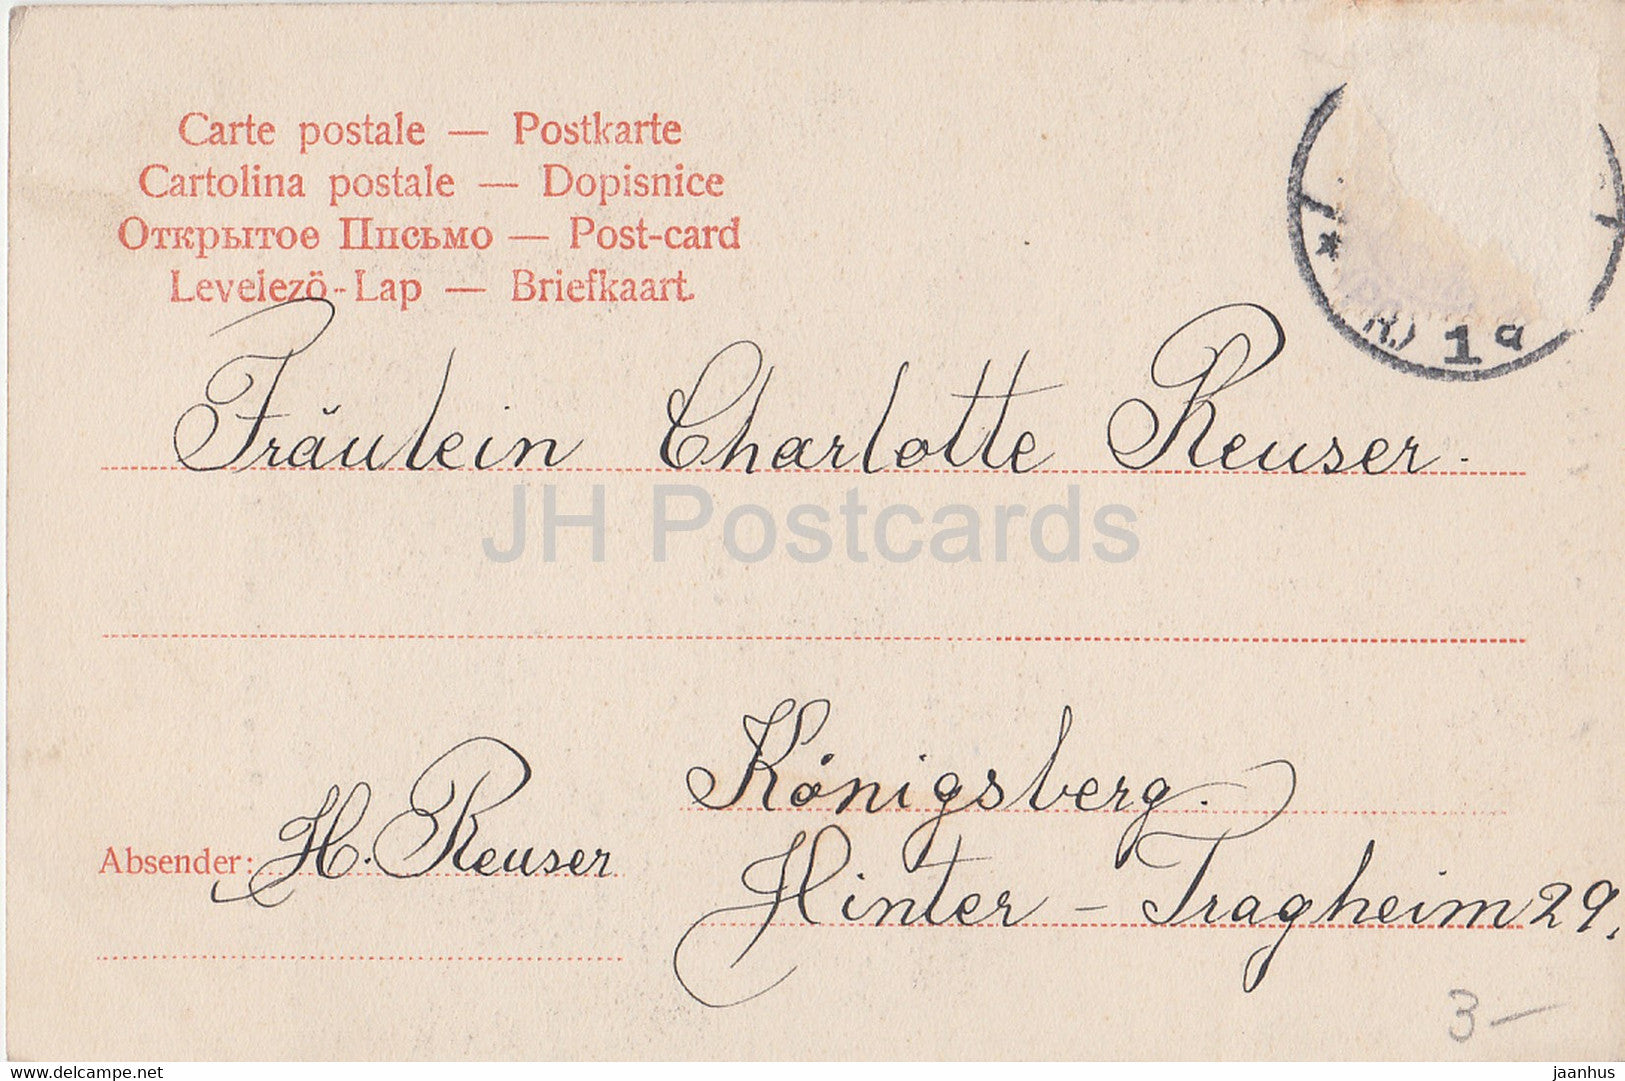 Carte postale — Postkarte
Cartolina postale — Dopisnice
Открытое Письмо — Post-card
Levelező-Lap — Briefkaart
Fräulein Charlotte Reuser.
JH Postcards
Königsberg.
Absender: H. Reuser
Hinter-Tragheim 29.
3 —
(PR.) 1 a
delcampe.net
jaanhus